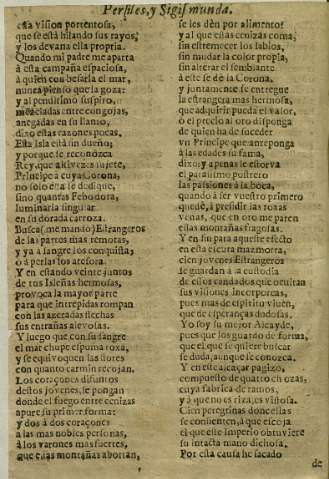 Persiles, y Sigismunda.
esta vision portentosa,
que se està hilando sus rayos,
y los devana ella propria.
Quando mi padre me aparta
à esta campaña espaciosa,
à quien con besarla el mar,
nunca pienso que la goza:
y al penultimo suspiro,
mezcladas entre congojas,
anegadas en su llanto,
dixo estas razones pocas.
Esta Isla està sin dueño;
y porque se reconozca
Rey, que à su cetro sujete,
Principe à cuya Corona,
no solo ella se dedique,
sino quantas Febodora,
luminaria singular
en su dorada carroza.
Busca (me manda) Estrangeros
de las partes mas remotas,
y ya à sangre los conquista;
ò à perlas los atesora.
Y en estando veinte juntos
de tus Isleñas hermosas,
provoca la mayor parte
para que intrepidas rompan
con las azeradas flechas
sus entrañas alevosas.
Y luego que con su sangre
el mar chupe espuma roxa,
y se equivoquen las flores
con quanto carmin recojan.
Los coraçones difuntos
destos jovenes, le pongan
donde el fuego entre cenizas
apure su primer forma:
y dos à dos coraçones
à las mas nobles personas,
à los varones mas fuertes,
que estas montañas abortan,
se les dèn por alimento:
y al que estas cenizas coma,
sin estremecer los labios,
sin mudar la color propia,
sin alterar el semblante
à este se dè la Corona,
y juntamente se entregue
la estrangera mas hermosa,
que adquirir pueda el valor,
ò el precio al oro disponga
de quien ha de suceder
un Principe que anteponga
à las edades su fama,
dixo: y apenas le estorva
el parasismo postrero
las passiones à la boca,
quando à ser vuestro primero
quedè, à presidir las roxas
venas, que en oro me paren
estas montañas fragosas.
Y en fin para aqueste efecto
en esta escura mazmorra,
cien jovenes Estrangeros
se guardan à la custodia
de cien candados que ocultan
sus visiones incorporeas,
pues mas de espiritu viven,
que de esperanças dudosas.
Yo soy su mejor Alcayde,
pues que los guardo de forma,
que el que se quiere buscar
se duda, aunque se conozca.
Y en este alcaçar pagizo,
compuesto de quatro chozas,
cuya fabrica de ramos,
y à que no es riza, es viñosa.
Cien peregrinas doncellas
se contienen, à que escoja
el que este imperio obtuviere
su intacta mano dichosa.
Por esta causa he sacado
de